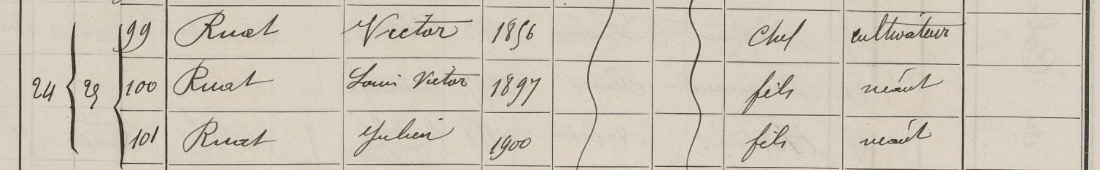 99 Ruat Victor 1856 Chef cultivateur
24 29 100 Ruat Louis Victor 1897 fils néant
101 Ruat Julien 1900 fils néant